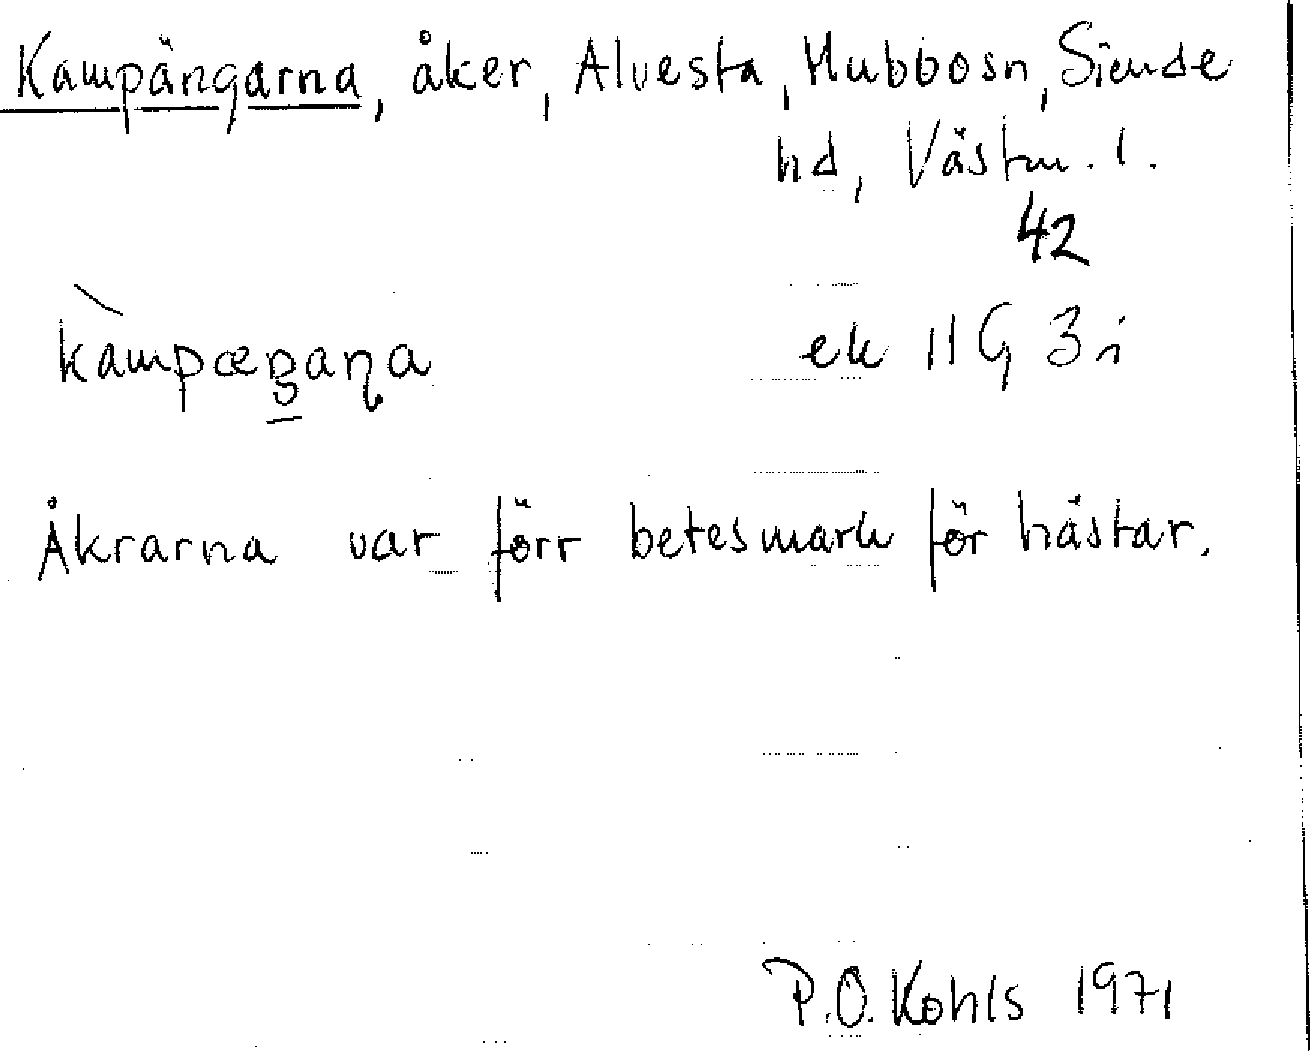 Kampängarna, åker, Alvesta, Hubbosn, Siende
hd, Västm. l.
42
ek 11G 3i
Åkrarna var förr betesmark för hästar.
P.O. Kohls 1971